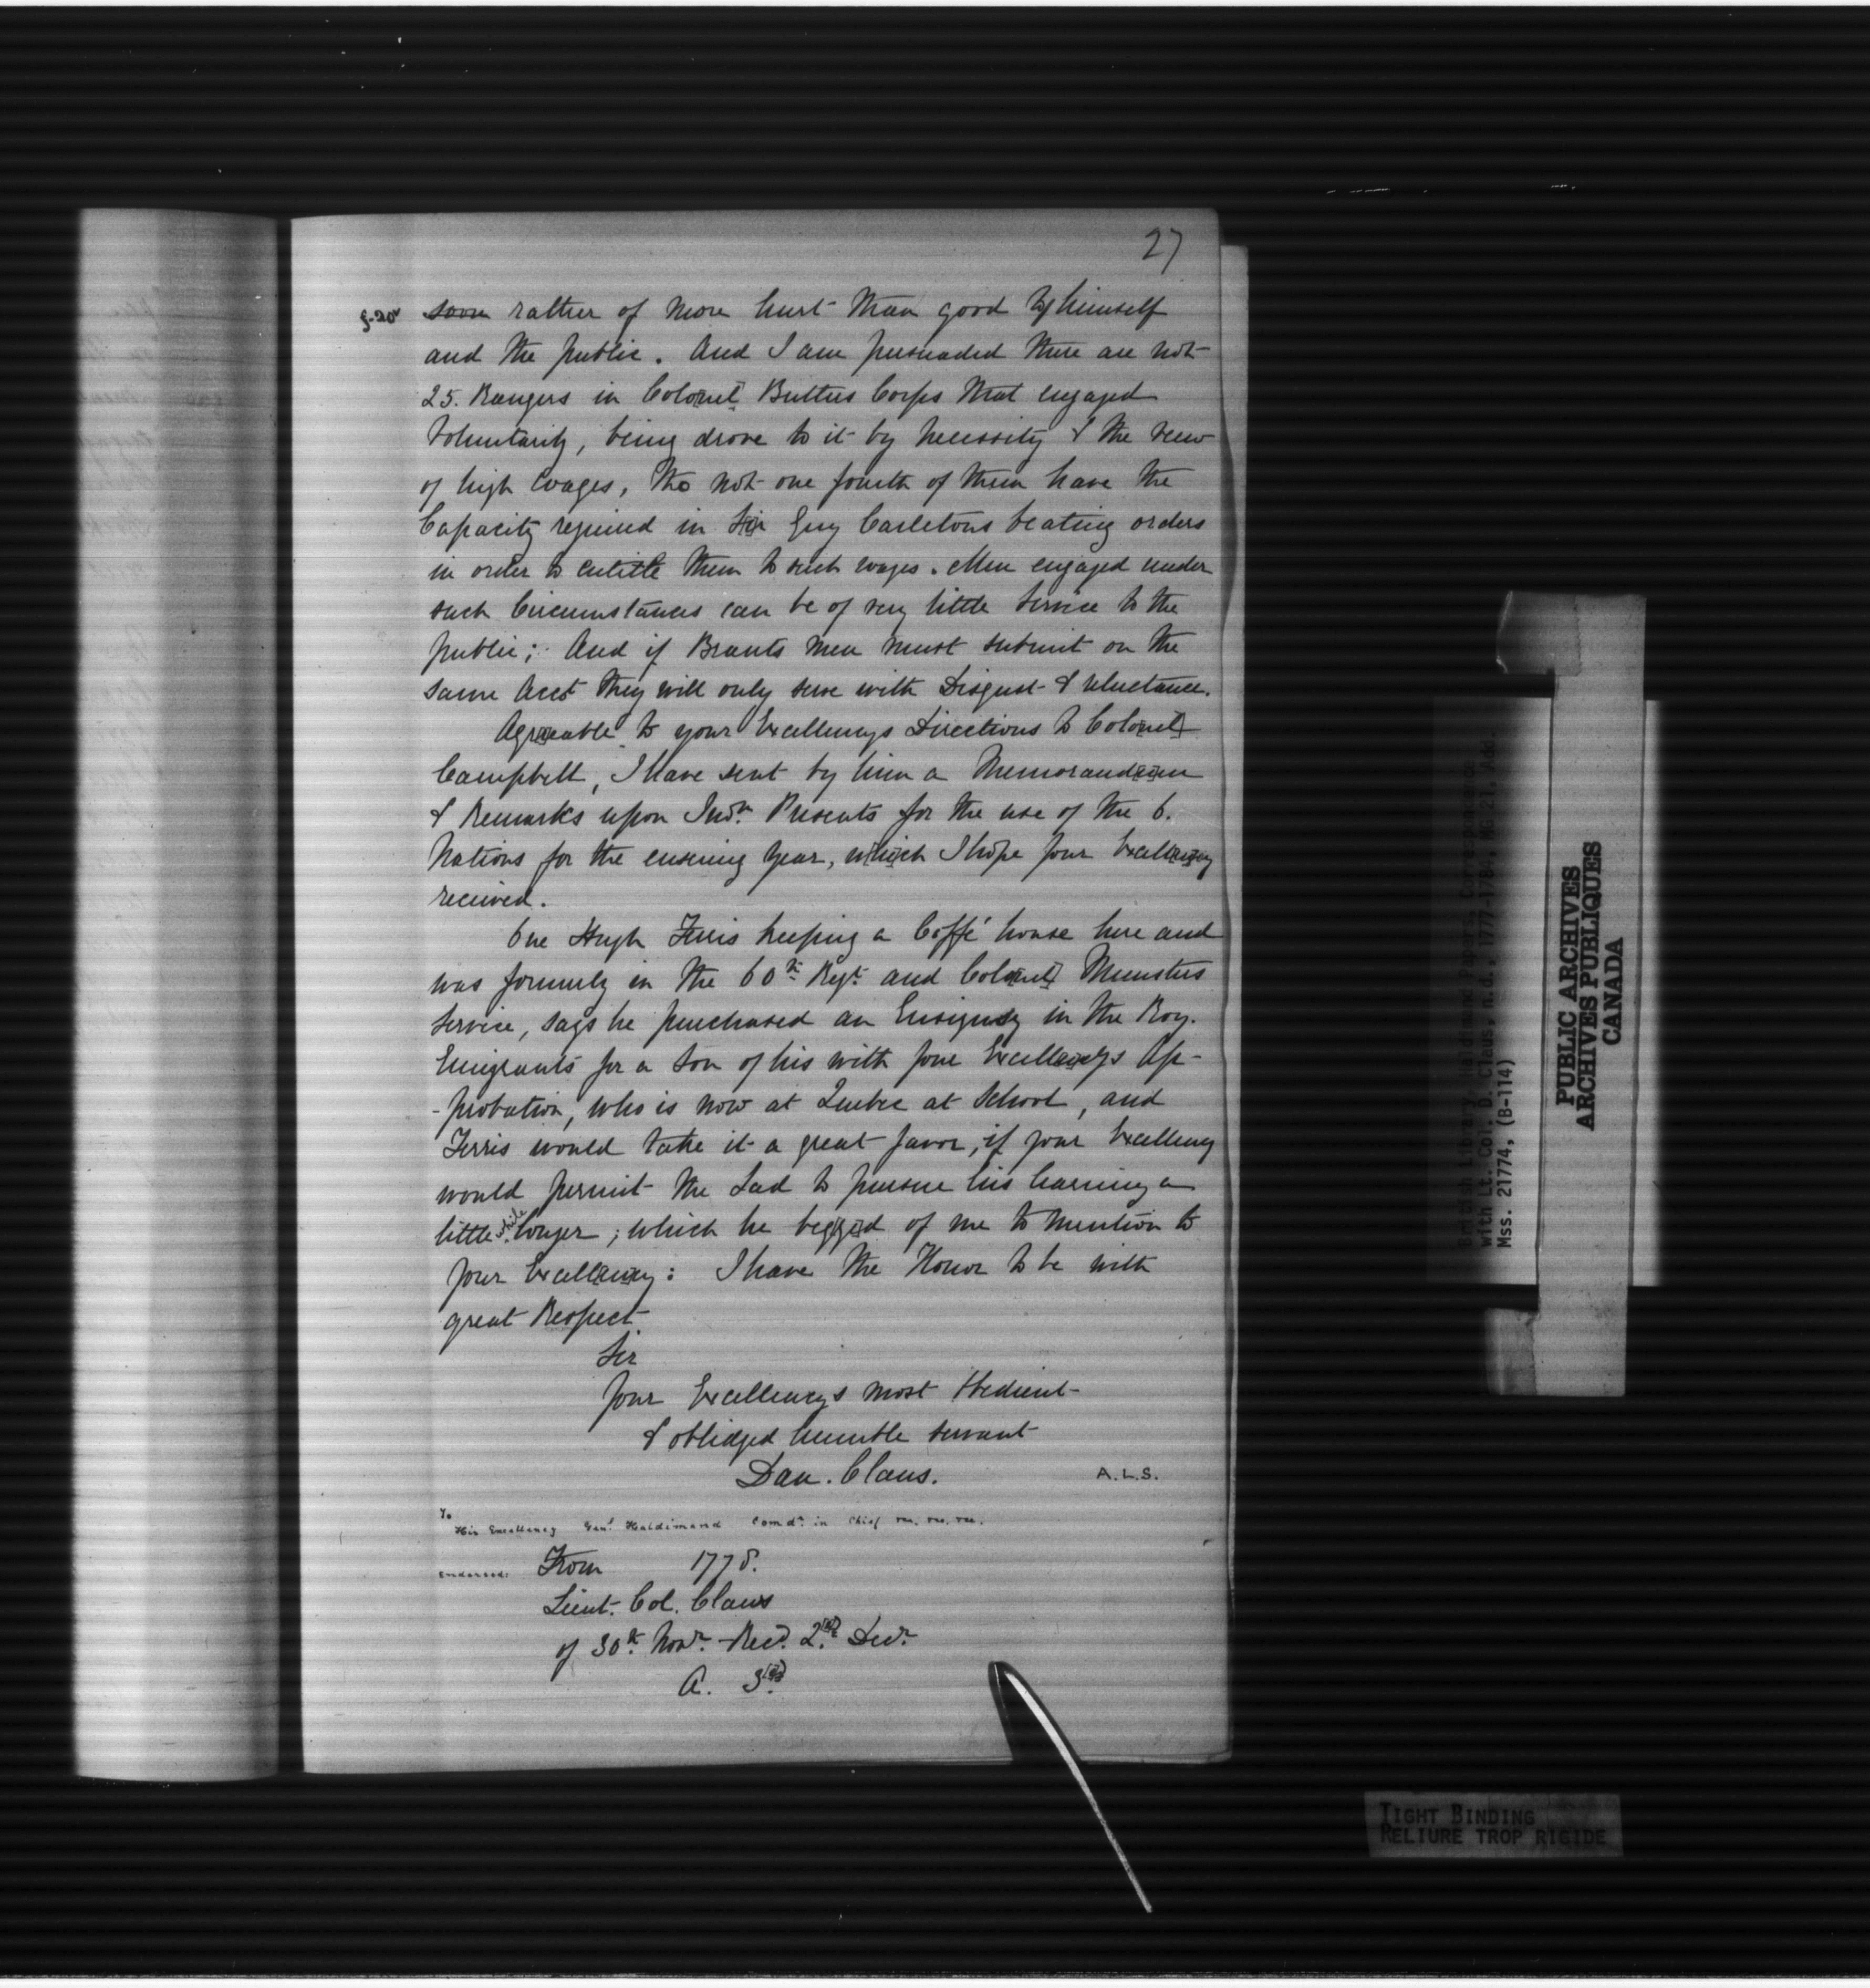 27
f.20v soon rather of more hurt than good to himself
and the public. And I am persuaded there are not
25. Rangers in Colo[ne]l Butlers Corps that engaged
Voluntarily, being drove to it by necessity & the view
of high Wages, tho not one fourth of them have the
Capacity required in Sir Guy Carletons beating orders
in order to entitle them to such wages. Men engaged under
such Circumstances can be of very little Service to the
public; And if Brants men must submit on the
same Acct they will only serve with Disgust & reluctance.
Agreeable to your Excellencys Directions to Colo[nel]
Campbell, I have sent by him a Memorand[um]
& Remarks upon Indn. Presents for the use of the 6.
Nations for the ensuing Year, w[hi]ch I hope your Excell[en]cy
received.
One Hugh Ferris keeping a Coffé house here and
was formerly in the 60th Regt. and Colo[nel] Munsters
Service, says he purchased an Ensigncy in the Roy.
Emigrants for a Son of his with your Excell[en]cys Ap-
-probation, who is now at Quebec at School, and
Ferris would take it a great favor, if your Excellency
would permit the Lad to pursue his learning a
little while longer; which he beg[ge]d of me to mention to
your Excell[en]cy: I have the Honor to be with
great Respect
Sir
Your Excellencys most Obedient
& oblidged humble servant
Dan. Claus.
A.L.S.
To
His Excellency Genl. Haldimand Comdr. in Chief &c. &c. &c.
Endorsed: From 1778.
Lieut. Col. Claus
of 30th Novr. Recd. 2[n]d Decr.
A. 3[r]d
British Library, Haldimand Papers, Correspondence
with Lt. Col. D. Claus, n.d., 1777-1784, MG 21, Add.
Mss. 21774, (B-114)
PUBLIC ARCHIVES
ARCHIVES PUBLIQUES
CANADA
TIGHT BINDING
RELIURE TROP RIGIDE